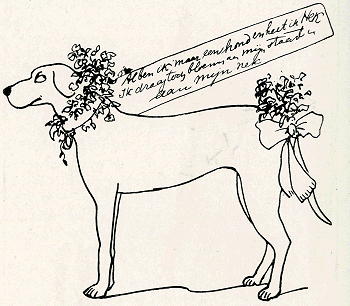 Al ben ik maar een hond en heet ik Nek
Ik draag toch bloemen aan mijn staart en
aan mijn nek